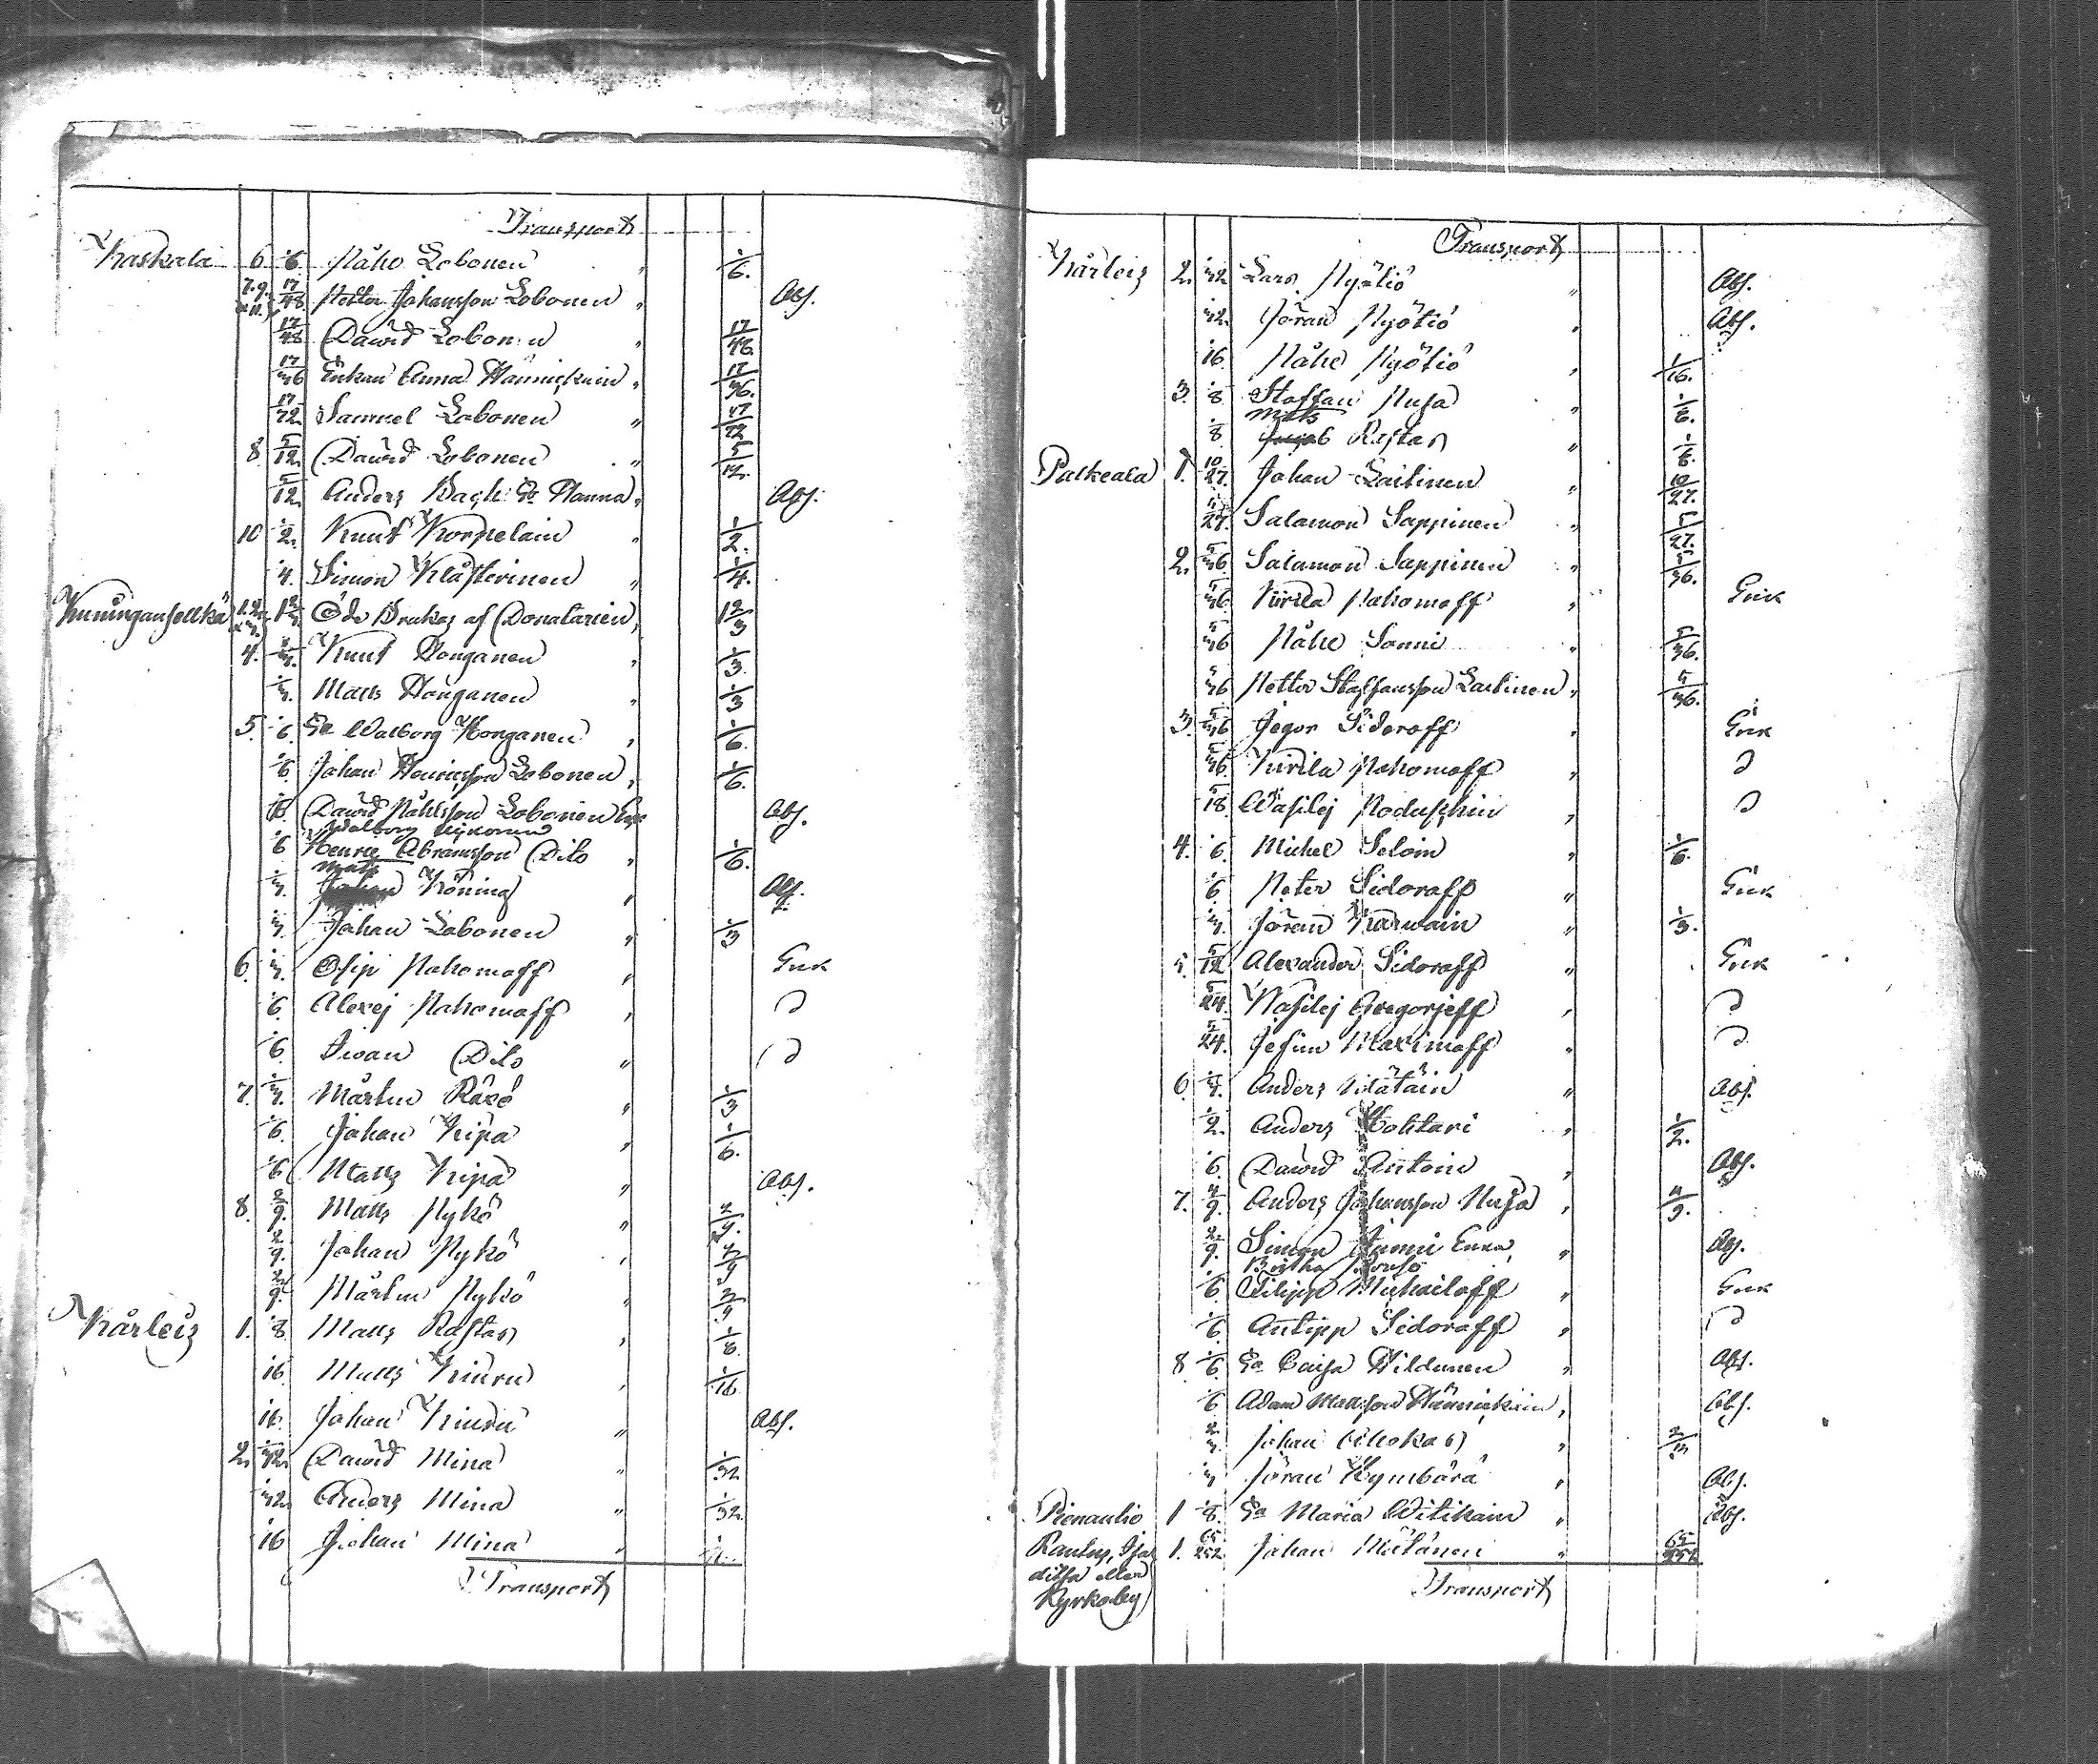 Transport
Kaskala 6 1/6 Påho Lobonen " 1/6.
7.9. & 11. 17/48 Petter Johansson Lobonen " Abs.
17/48 David Lobonen " 17/48.
17/36 Enkan Anna Hännickain " 17/36.
17/72 Samuel Lobonen " 17/72
8 5/12 David Lobonen " 5/12.
5/12 Anders Hanna " Abs.
10 1/2. Knut Korpelain " 1/2.
1/4. Simon Klåsterinen " 1/4.
Kuninganselkä 1.2. & 3. 1 2/3 Öde Brukas af Donatarien 1 2/3
4. 1/3. Knut Honganen " 1/3.
1/3. Matts Honganen " 1/3
5. 1/6. Ea Walborg Honganen " 1/6.
1/6. Johan Henricsson Lobonen " 1/6.
1/6. David Påhlsson Lobonen Abs.
Walborg Nykonen
1/6 Henric Abramsson Dito " 1/6.
Matts
1/3. Köning " Abs.
1/3. Johan Lobonen " 1/3
6. 1/3. Osip Pahomoff " Grek
1/6. Alexej Pahomoff " D
1/6. Iwan Dito " D
7. 1/3. Mårten Räxö " 1/3
1/6. Johan Kipa " 1/6.
1/6 Matts Kipa " Abs.
8. 2/9. Matts Pykö " 2/9.
2/9. Johan Pykö " 2/9
2/9. Mårten Pykö " 2/9
Kårleis 1. 1/8. Matts Rastas " 1/8.
1/16. Matts Kiuru " 1/16.
1/16. Johan Kiuru " Abs.
2. 1/32. David Mina " 1/32
1/32. Anders Mina " 1/32.
1/16 Johan Mina "
Transport
Transport
Kårleis 2. 1/32 Lars Pyötiö " Abs.
1/32. Jöran Pyötiö " Abs.
1/16. Påhl Pyötiö " 1/16.
3. 1/8 Staffan Pusa " 1/8.
Matts
1/8. Rastas " 1/8.
Palkeala 1. 10/27. Johan Laitinen " 10/27.
5/27. Salamon Sappinen " 5/27.
2. 5/36 Salamon Sappinen " 5/36.
5/36 Kirila Pahomoff " Grek
5/36 Påhl Sonni " 5/36.
5/36 Petter Staffansson Laitinen " 5/36.
3. 5/36 Jegor Sidoroff " Grek
5/36. Kirila Pahomoff " D
5/18. Wasilej Poduschin " D
4. 1/6. Michel Seloin " 1/6.
1/6 Peter Sidoroff " Grek
1/3. Jöran Karwain " 1/3.
5. 5/12 Alexander Sidoroff " Grek
5/24. Wasilej Gregorjeff " D
5/24. Jefim Maximoff " D
6. 1/3. Anders " Abs.
1/2. Anders Kolkkari " 1/2.
1/6. David Antoin " Abs.
7. 4/9. Anders Johansson Pusa " 4/9.
2/9. Simon Enka " Abs.
1/6. Filipp Michailoff " Grek
1/6 Antipp Sidoroff " D
8. 1/6. Ea Caisa Hildunen " Abs.
1/6 Adam Mattsson Hännickain " Abs.
2/3. Johan " 2/3
1/3 Jöran " Abs.
Pienautio 1 1/8. Ea Maria Witikain " Abs.
Rautus, 1. 65/252. Johan Mätönen " 65/252
eller
Kyrkoby
Transport